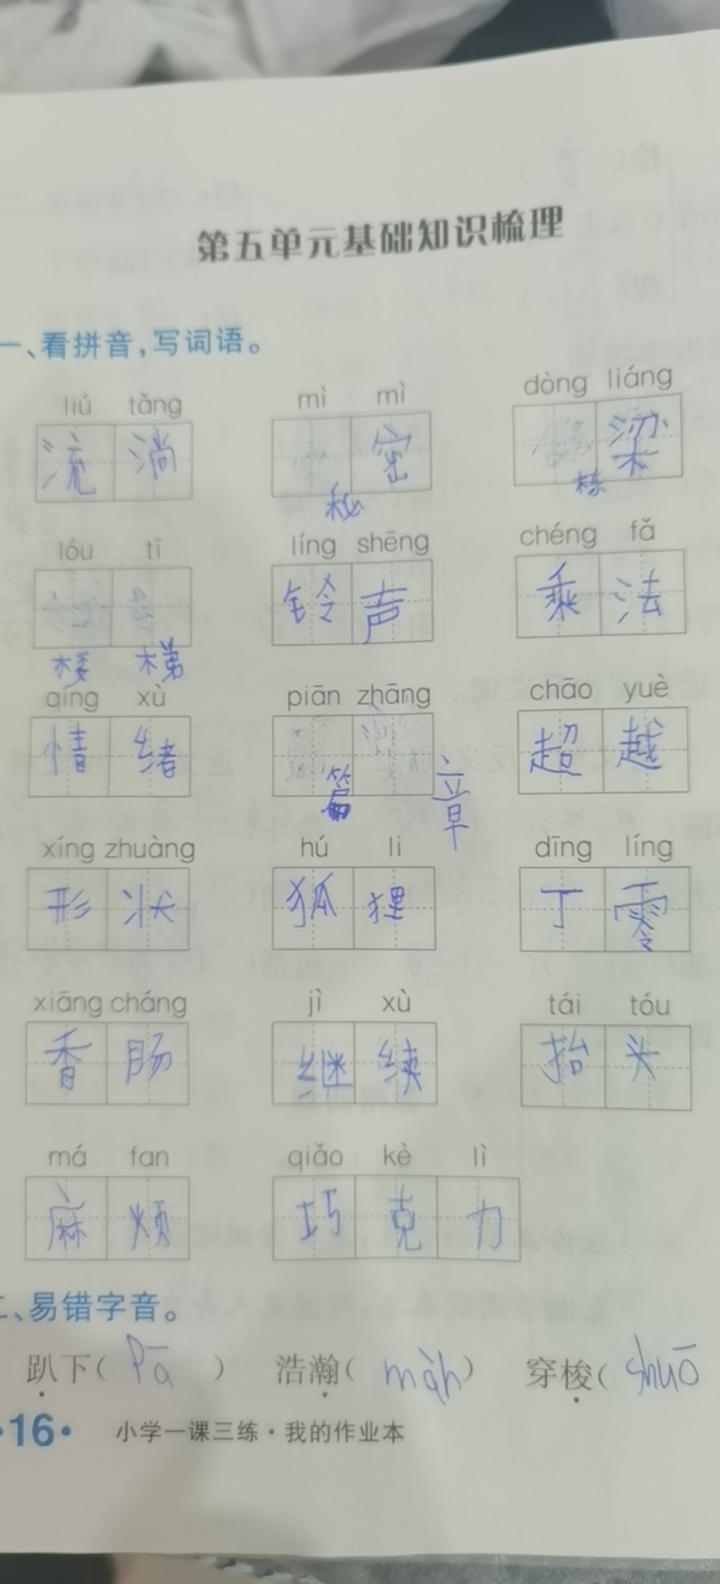 第五单元基础知识梳理
一、看拼音,写词语。
liú tǎng mì mì dòng liáng
流淌 密 梁
秘 栋
lóu tī líng shēng chéng fǎ
铃声 乘法
楼梯
qíng xù piān zhāng chāo yuè
情绪 篇章 超越
xíng zhuàng hú li dīng líng
形状 狐狸 丁零
xiāng cháng jì xù tái tóu
香肠 继续 抬头
má fan qiǎo kè lì
麻烦 巧克力
二、易错字音。
趴下( pā ) 浩瀚( màn ) 穿梭( shuō
·16· 小学一课三练·我的作业本